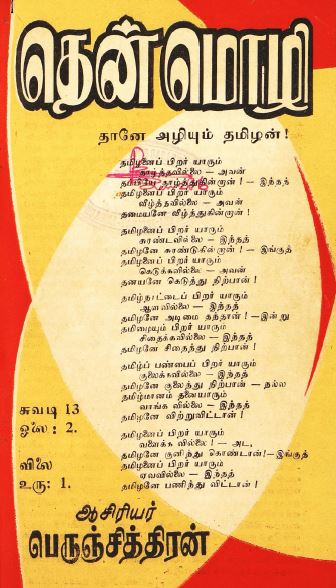 தென்மொழி
தானே அழியும் தமிழன்!
தமிழனைப் பிறர் யாரும்
தாழ்த்தவில்லை — அவன்
தம்பியே தாழ்த்துகின்றான்! — இந்தத்
தமிழனைப் பிறர் யாரும்
வீழ்த்தவில்லை — அவன்
தமையனே வீழ்த்துகின்றான்!
தமிழனைப் பிறர் யாரும்
சுரண்டவில்லை — இந்தத்
தமிழனே சுரண்டுகின்றான்! — இங்குத்
தமிழனைப் பிறர் யாரும்
கெடுக்கவில்லை — அவன்
தனயனே கெடுத்து நிற்பான்!
தமிழ்நாட்டைப் பிறர் யாரும்
ஆளவில்லை — இந்தத்
தமிழனே அடிமை தந்தான்! — இன்று
தமிழையும் பிறர் யாரும்
சிதைக்கவில்லை — இந்தத்
தமிழனே சிதைத்து நிற்பான்!
தமிழ்ப் பண்பைப் பிறர் யாரும்
குலைக்கவில்லை — இந்தத்
தமிழனே குலைத்து நிற்பான் — நல்ல
தமிழ்மானம் தனையாரும்
வாங்க வில்லை — இந்தத்
தமிழனே விற்றுவிட்டான்!
தமிழனைப் பிறர் யாரும்
வளைக்க வில்லை! — அட,
தமிழனே குனிந்து கொண்டான்! — இங்குத்
தமிழனைப் பிறர் யாரும்
ஏவவில்லை — இந்தத்
தமிழனே பணிந்து விட்டான்!
சுவடி 13
ஓலை: 2.
விலை
உரு: 1.
ஆசிரியர்
பெருஞ்சித்திரன்